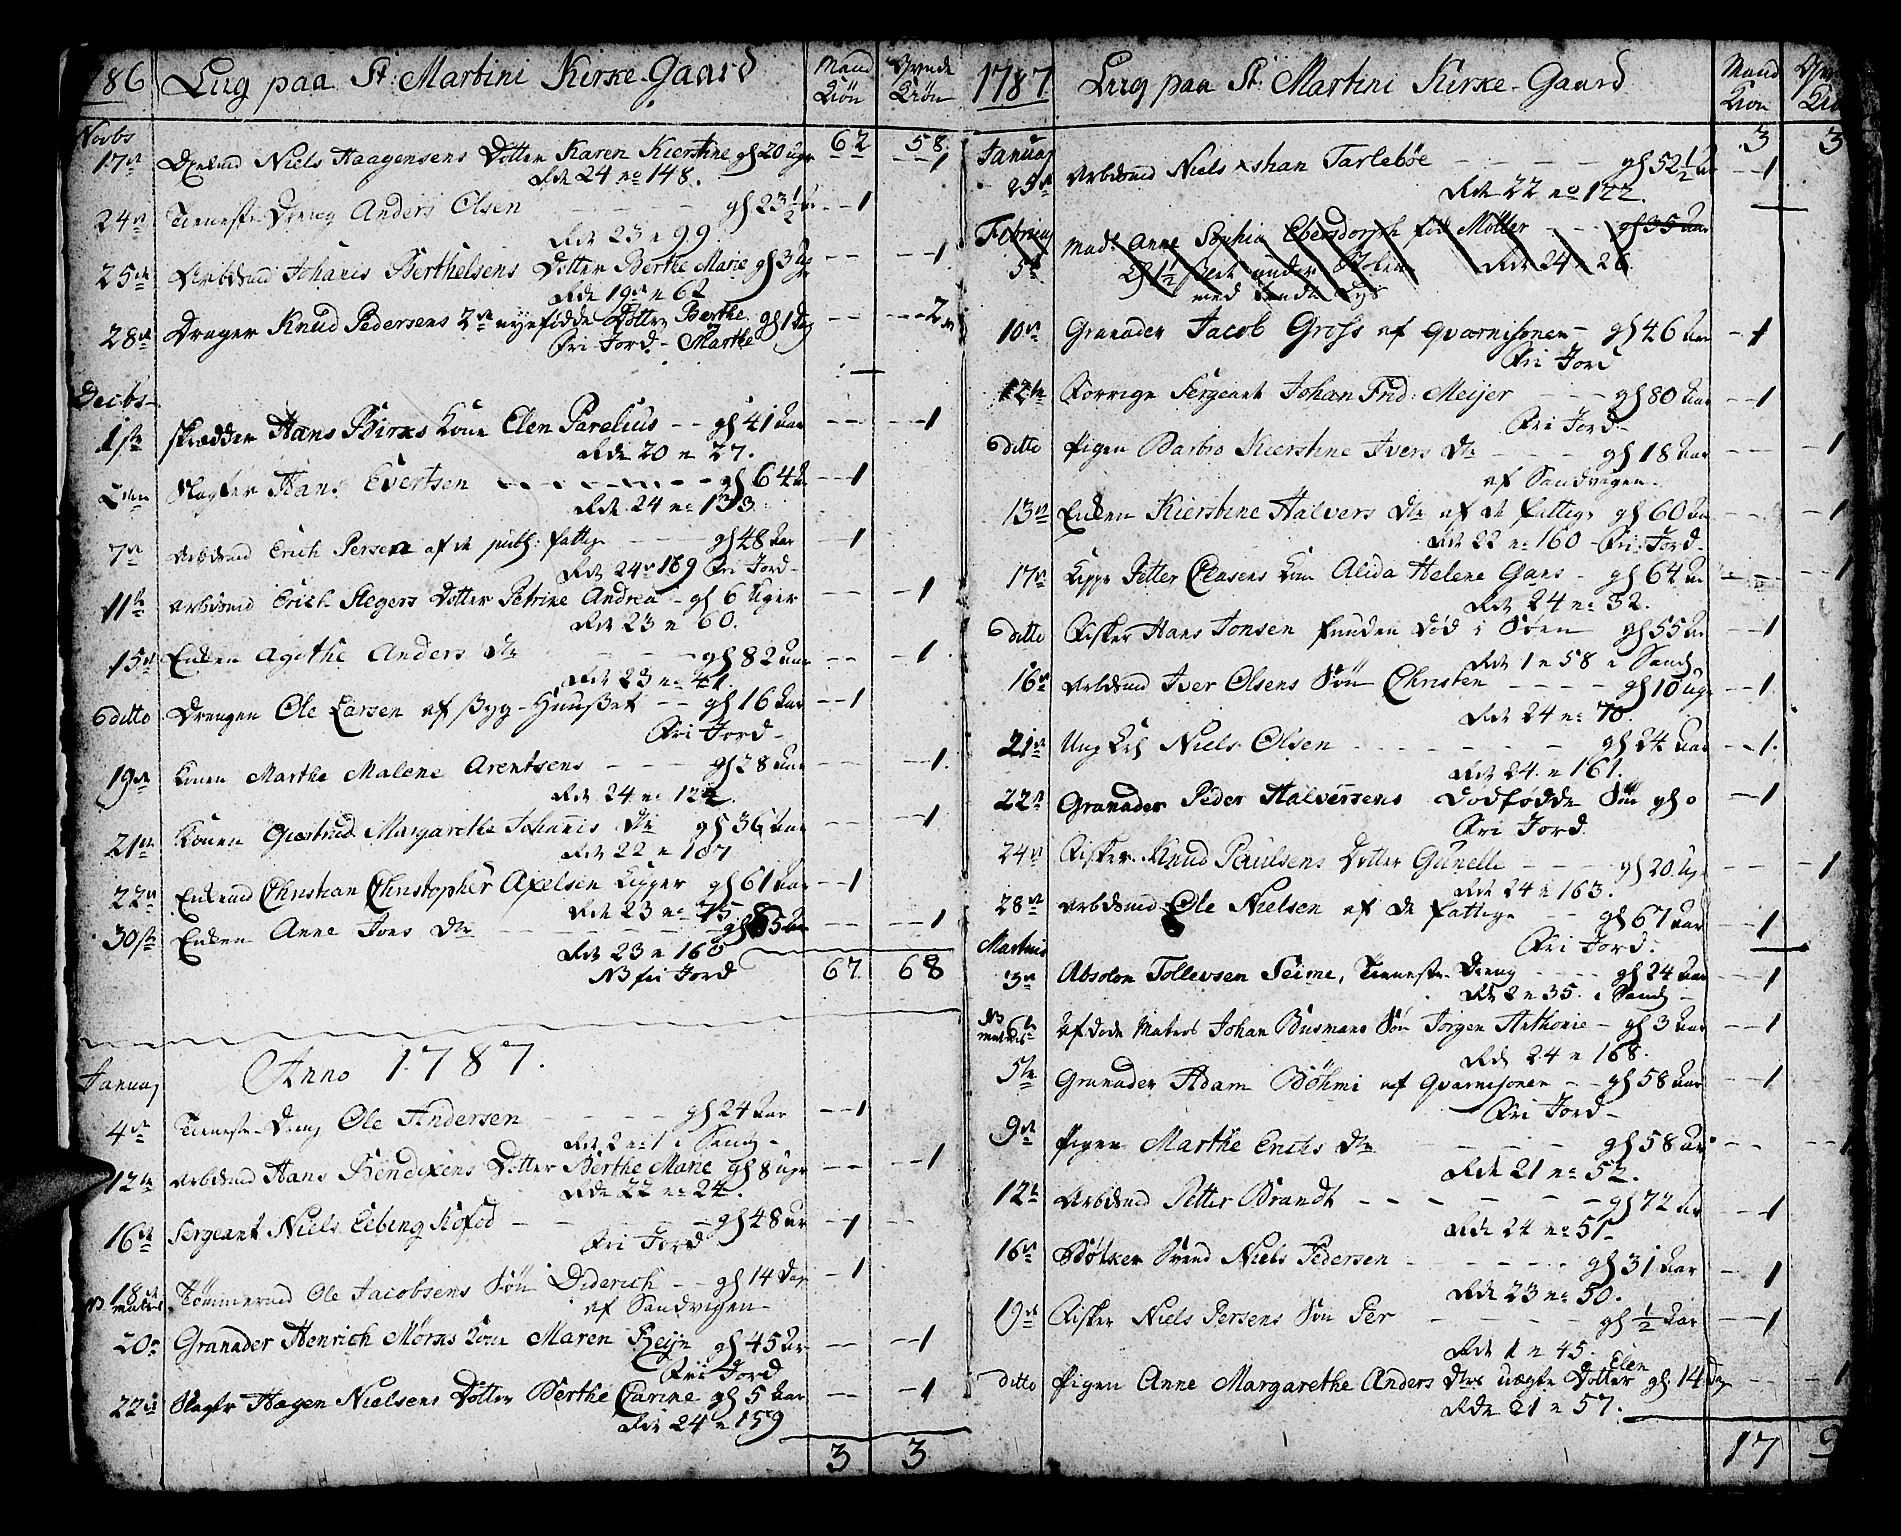 786 Liig paa St: Martini Kirke-Gaard Mand Kiøn Qvinde Kiøn
Novbr
62 58
17de Niels Haagensens Dotter Karen Kierstine gl 20 uger 1
Rde 24 no 148.
24de Tieneste-Dreng Anders Olsen gl 23 1/2 1
Rde 23 n 99
25de Arbdsmd Johanis Berthelsens Dotter Berthe Marie gl 3 ug 1
Rde 19de n 62
28de Drager Knud Pedersens 2de nyefødde Dotter Berthe gl 1 dag 2
Fri Jord - Marthe
Decbr
1ste Skrædder Hans Birks Kone Elen Parelius gl 41 aar 1
Rde 20 n 27.
2den Slagter Hans Evertsen gl 64 1
Rde 24 no 133
7de Arbdsmd Erich Persen af de publ: fattige gl 48 aar 1
Rde 24 n 169 Fri Jord
11te Arbdsmd Erich Stegers Dotter Petrine Andrea gl 6 Uger 1
Rde 23 n 60.
15de Enken Agithe Anders Dtr gl 82 aar 1
Rde 23 no 41.
ditto Drengen Ole Larsen af Tyg-Huuset gl 16 aar 1
Fri Jord
19de Konen Marthe Malene Arentsens gl 28 aar 1
Rde 24 no 124.
21de Konen Giertrud Margarethe Johanis Dtr gl 36 aar 1
Rde 22 n 107
22de Enkemd Christian Christopher Axelsen Kipper gl 61 aar 1
Rde 23 no 75.
30te Enken Anne Jons Dtr gl 85 1
Rde 23 n 160
N3 fri Jord 67 68
Anno 1787.
Januarj
4de Tieneste-Dreng Ole Andersen gl 24 aar 1
Rde 2 no 1 i Sand
12te Arbdsmd Hans Bendixens Dotter Berthe Marie gl 8 uger 1
Rde 22 no 24.
16de Sergeant Niels Eebing Kofod gl 48 aar 1
Fri Jord
18de Tømmermd Ole Jacobsens Søn Diderich gl 14 dag 1
af Sandvigen
20de Granader Henrich Mørks Kone Maren Heijn gl 45 aar 1
Fri Jord
22de Slagter Hagen Nielsens Dotter Berthe Carine gl 5 aar 1
Rde 24 n 159
3 3
1787 Liig paa St: Martini Kirke-Gaard Mand Kiøn
3 3
Januarj
25de Arbdsmd Niels Tarlebøe gl 52 1/2 1
Rde 22 no 122.
Februarj
5te Mad: Anne Sophia Ebersdorph fød Møller gl 35 aar
Rde 24 n 26
med tendte Lys
10de Granader Jacob Gross af Gvarnisonen gl 46 aar 1
Fri Jord
12te Forrige Sergeant Johan Frid: Meijer gl 80 aar 1
Fri Jord
ditto Pigen Barbro Kierstine Ivers Dtr gl 18 aar 1
af Sandvigen
13de Enken Kierstine Halvers Dtr af de fattige gl 60 1
Rde 22 no 160 Fri Jord
17de Kipper Petter Clasens Kone Alida Helene Gans gl 64 1
Rde 24 no 32.
ditto Fisker Hans Jonsen funden død i Søen gl 55 1
Rde 1 n 58 i Sand
16de Arbdsmd Iver Olsens Søn Christen gl 10 uger 1
Rde 24 no 70.
21de Ung Karl Niels Olsen gl 24 aar 1
Rde 24 n 161.
22de Granader Peder Halversens Dødfødde Søn gl 0 1
Fri Jord
24de Fisker Knud Paulsens Dotter Gunelle gl 20 uger 1
Rde 24 n 163.
28de Arbdsmd Ole Nielsen af de fattige gl 67 aar 1
Fri Jord.
Martius
3de Absolon Tollevsen Seime, Tieneste-Dreng gl 24 aar 1
Rde 2 n 35. i Sand
6te afdøde Matros Johan Busmans Søn Jørgen Anthonie gl 3 aar 1
Rde 24 n 168.
5te Granader Adam Bøhmi af Gvarnisonen gl 58 aar 1
Fri Jord
9de Pigen Marthe Erichs Dtr gl 58 aar 1
Rde 21 no 52.
12te Arbdsmd Petter Brandt gl 72 aar 1
Rde 24 no 51
16de Bødker Svend Niels Pedersen gl 31 aar 1
Rde 23 no 50.
19de Fisker Niels Persens Søn Per gl 1/2 aar 1
Rde 1 n 45.
Elen
ditto Pigen Anne Margarethe Anders Dtrs uægte Dotter gl 14 dag 1
Rde 21 n 57.
17 9